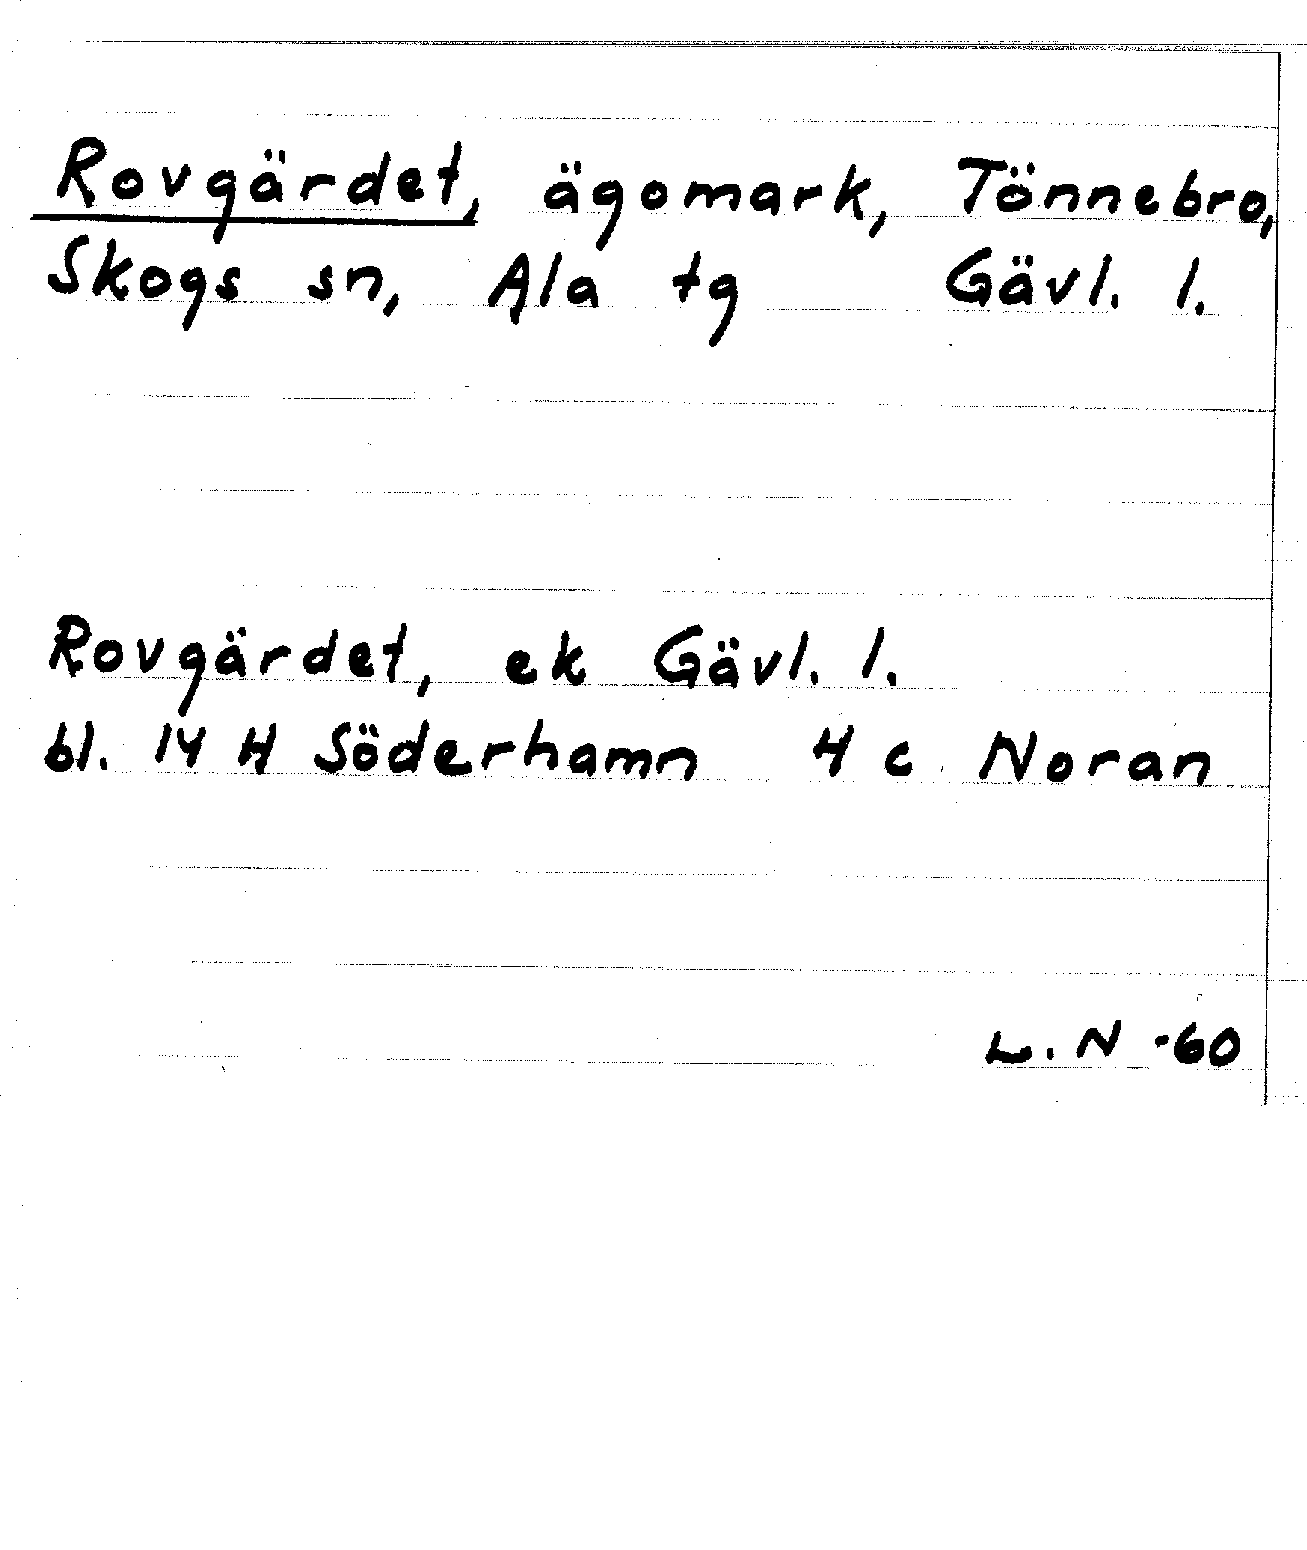 Rovgärdet, ägomark, Tönnebro,
Skogs sn, Ala tg Gävl. l.
Rovgärdet, ek Gävl. l.
bl. 14 H Söderhamn 4 c Noran
L. N -60